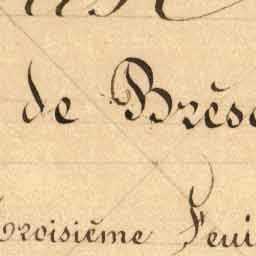 de Brés
troisième Feui